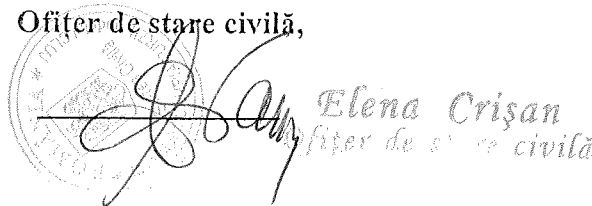 Ofițer de stare civilă,
Elena Crişan
Ofițer de stare civilă